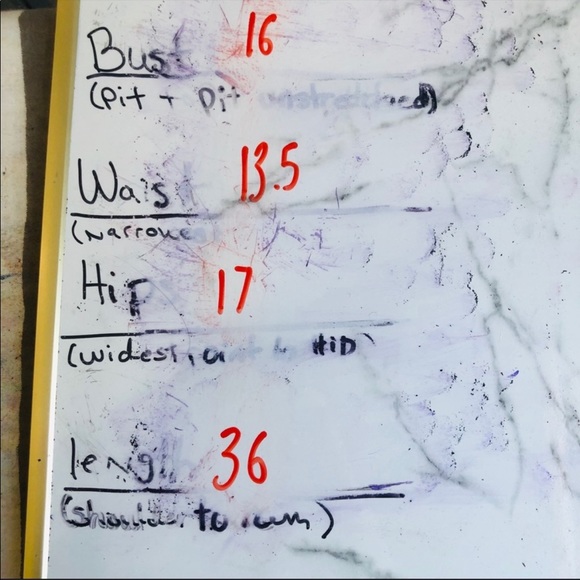 Bust 16
(Pit + Pit unstretched)
Wais 13.5
(Narrowe
Hip 17
(widest Hip
length 36
(shoulder to